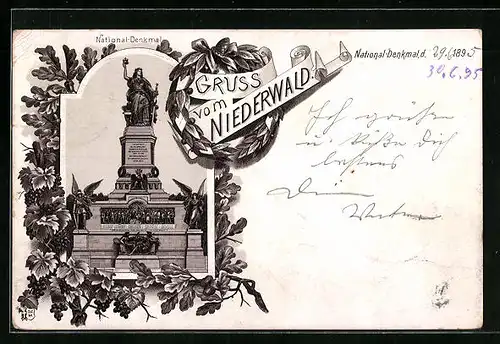 National-Denkmal
GRUSS
vom
NIEDERWALD.
National-Denkmal, d. 29.6. 1895
30.6.95
Ich grüße
u. küße Dich
bestens
Dein